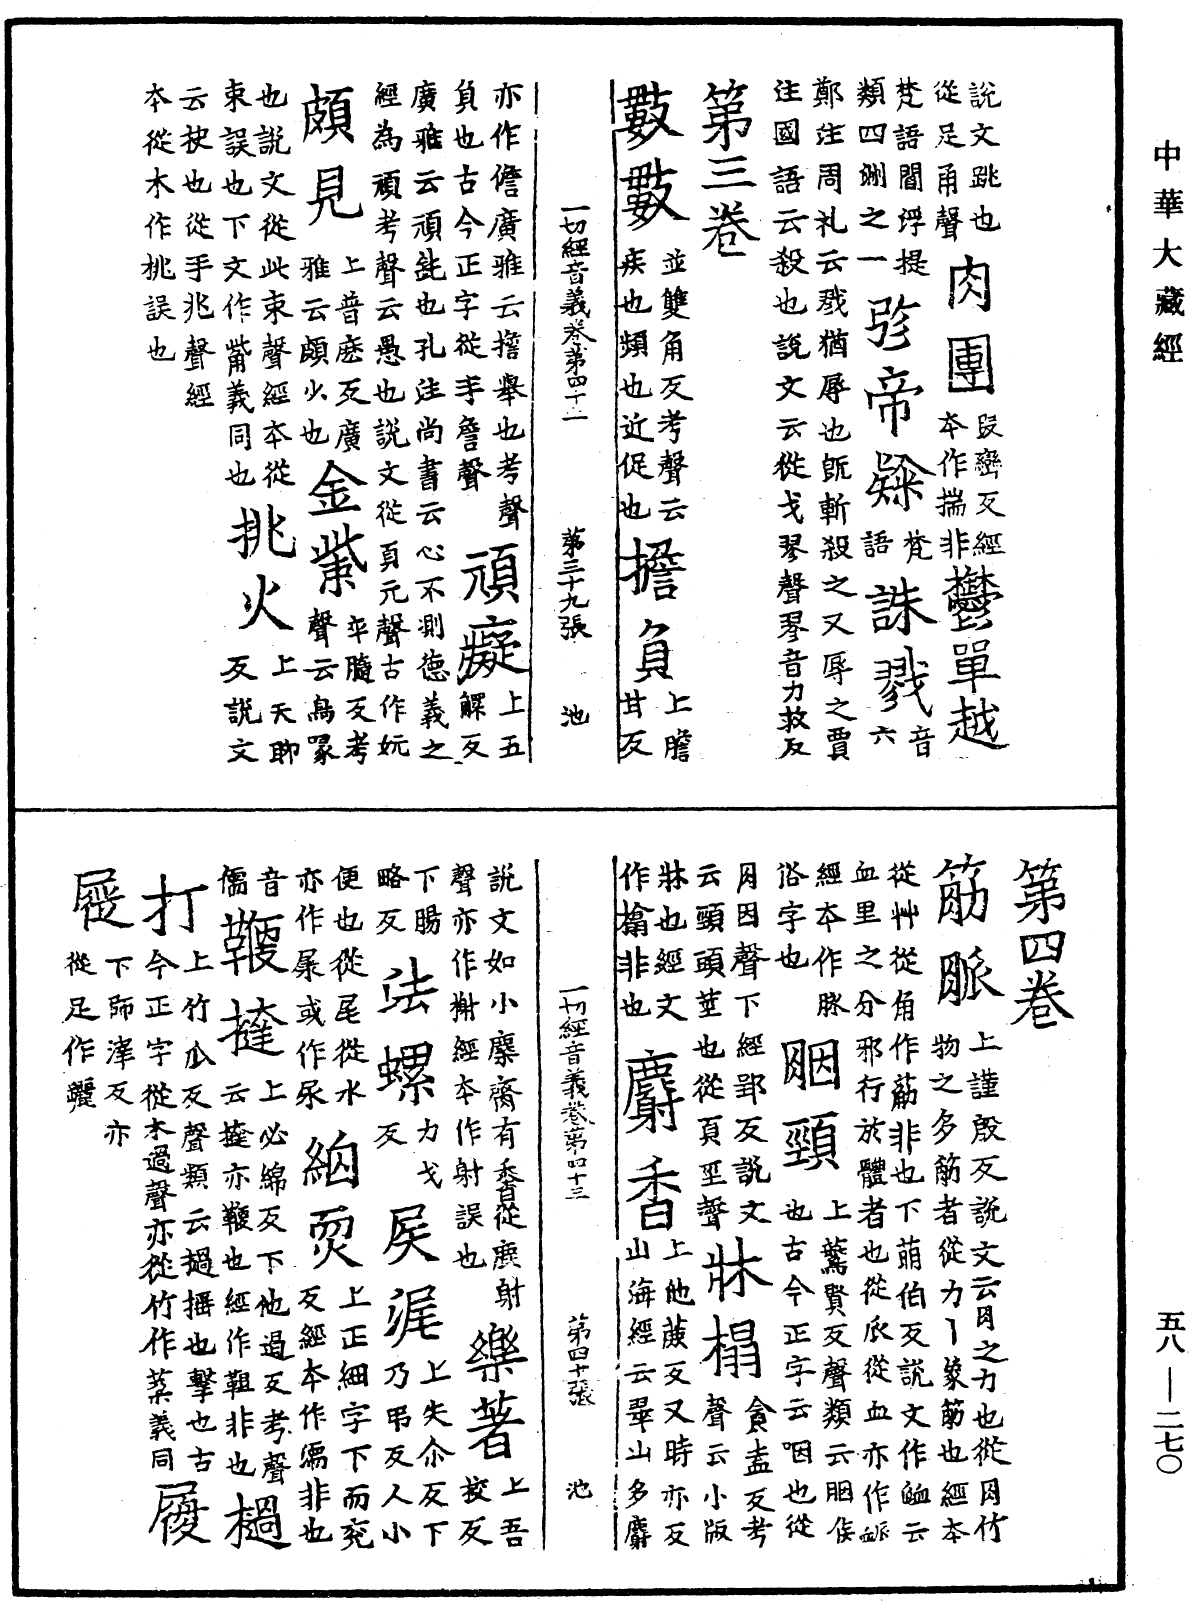 中華大藏經
說文跳也
從足甬聲
肉團
段巒反經
本作揣非
鬱單越
梵語閻浮提
類四洲之一
弶帝𪎊
梵
語
誅戮
音
六
鄭注周礼云戮猶辱也旣斬殺之又辱之賈
注國語云殺也說文云從戈翏聲翏音力救反
第三卷
數數
並雙角反考聲云
疾也頻也近促也
擔負
上膽
甘反
一切經音義卷第四十二 第三十九張 池
亦作儋廣雅云擔舉也考聲
負也古今正字從手詹聲
頑癡
上五
鰥反
廣雅云頑鈍也孔注尚書云心不測德義之
經為頑考聲云愚也說文從頁元聲古作妧
頗見
上普麽反廣
雅云頗少也
金觜
卒髓反考
聲云鳥喙
也說文從此束聲經本從
束誤也下文作觜義同也
挑火
上天聊
反說文
云抉也從手兆聲經
本從木作桃誤也
第四卷
筋脈
上謹殷反說文云肉之力也從肉竹
物之多筋者從力丨象筋也經本
從艸從角作荕非也下萌伯反說文作衇云
血里之分邪行於體者也從𠂢從血亦作脈
經本作脉
俗字也
胭頸
上鷰賢反聲類云胭俟
也古今正字云咽也從
肉因聲下經郢反說文
云頸頭莖也從頁巠聲
牀榻
貪盍反考
聲云小版
牀也經文
作㯓非也
麝香
上他蔗反又時亦反
山海經云翠山多麝
一切經音義卷第四十三 第四十張 池
說文如小麋臍有香從鹿射
聲亦作榭經本作射誤也
樂著
上吾
挍反
下腸
略反
法螺
力戈
反
屎浘
上失尒反下
乃弔反人小
便也從尾從水
亦作屎或作尿
細耎
上正細字下而兖
反經本作濡非也
音
儒
鞭撻
上必綿反下他過反考聲
云撻亦鞭也經作靼非也
檛
打
上竹瓜反聲類云撾搐也擊也古
今正字從木過聲亦從竹作簻義同
履
屣
下師滓反亦
從足作躧
五八—二七〇